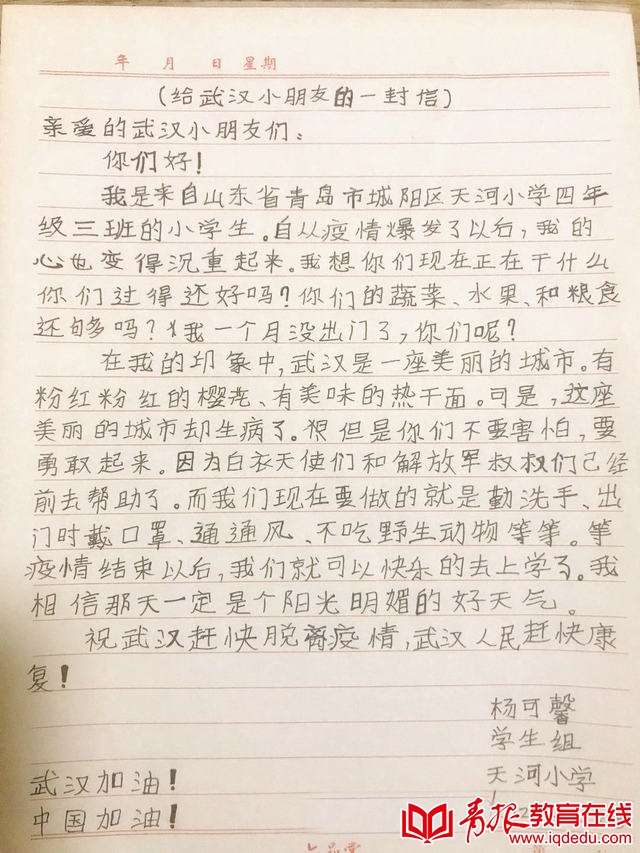 年 月 日 星期
(给武汉小朋友的一封信)
亲爱的武汉小朋友们:
你们好!
我是来自山东省青岛市城阳区天河小学四年
级三班的小学生。自从疫情爆发了以后,我的
心也变得沉重起来。我想你们现在正在干什么
你们过得还好吗?你们的蔬菜、水果、和粮食
还够吗?我一个月没出门了,你们呢?
在我的印象中,武汉是一座美丽的城市。有
粉红粉红的樱花、有美味的热干面。可是,这座
美丽的城市却生病了。但是你们不要害怕,要
勇敢起来。因为白衣天使们和解放军叔叔们已经
前去帮助了。而我们现在要做的就是勤洗手、出
门时戴口罩、通通风、不吃野生动物等等。等
疫情结束以后,我们就可以快乐的去上学了。我
相信那天一定是个阳光明媚的好天气。
祝武汉赶快脱离疫情,武汉人民赶快康
复!
杨可馨
学生组
天河小学
武汉加油!
中国加油!
青报教育在线
www.iqdedu.com